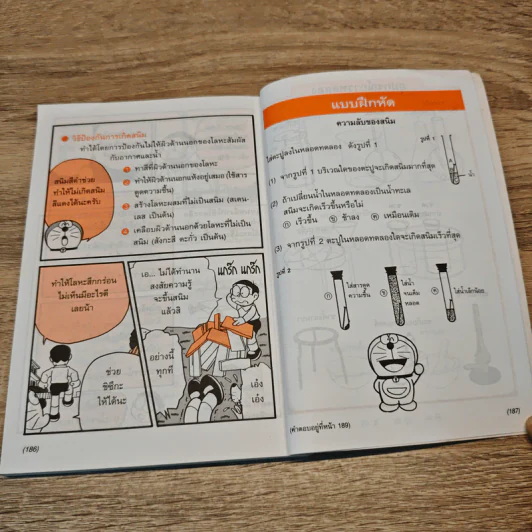 วิธีป้องกันการเกิดสนิม
ทำได้โดยการป้องกันไม่ให้ผิวด้านนอกของโลหะสัมผัส
กับอากาศและน้ำ
1 ทาสีที่ผิวด้านนอกของโลหะ
2 ทำให้ผิวด้านนอกแห้งอยู่เสมอ (ใช้สาร
ดูดความชื้น)
3 สร้างโลหะผสมที่ไม่เป็นสนิม (สเตน-
เลส เป็นต้น)
4 เคลือบผิวด้านนอกด้วยโลหะที่ไม่เป็น
สนิม (สังกะสี ตะกั่ว เป็นต้น)
สนิมสีดำช่วย
ทำให้ไม่เกิดสนิม
สีแดงได้นะครับ
ทำให้โลหะสึกกร่อน
ไม่เห็นมีอะไรดี
เลยน้า
ช่วย
ชิซึกะ
ให้ได้นะ
เอ... ไม่ได้ทำนาน
สงสัยความรู้
จะขึ้นสนิม
แล้วสิ
แกร๊ก แกร๊ก
อย่างนี้
ทุกที
เอ๋ง
เอ๋ง
(186)
แบบฝึกหัด
ความลับของสนิม
ใส่ตะปูลงในหลอดทดลอง ดังรูปที่ 1
รูปที่ 1
น้ำ
(1) จากรูปที่ 1 บริเวณใดของตะปูจะเกิดสนิมมากที่สุด
(2) ถ้าเปลี่ยนน้ำในหลอดทดลองเป็นน้ำทะเล
สนิมจะเกิดเร็วขึ้นหรือไม่
ก เร็วขึ้น ข ช้าลง ค เหมือนเดิม
(3) จากรูปที่ 2 ตะปูในหลอดทดลองใดจะเกิดสนิมเร็วที่สุด
รูปที่ 2
ก ใส่สารดูด
ความชื้น
ข ใส่น้ำ
จนเต็ม
หลอด
ค ใส่น้ำเล็กน้อย
(คำตอบอยู่ที่หน้า 189)
(187)